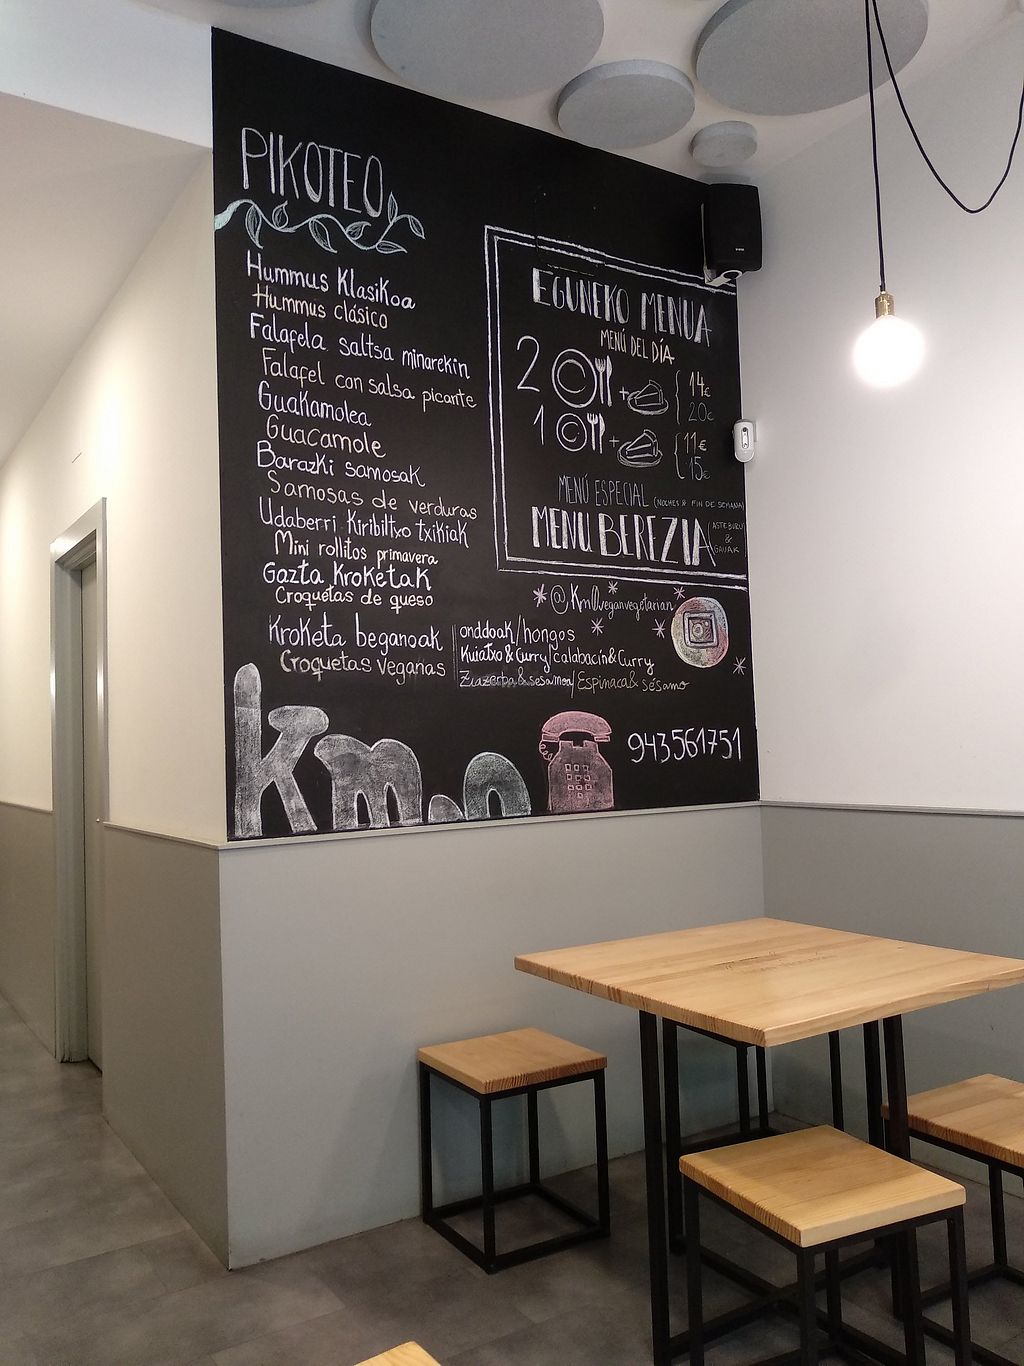 PIKOTEO
Hummus Klasikoa
Hummus clásico
Falafela saltsa minarekin
Falafel con salsa picante
Guakamolea
Guacamole
Barazki samosak
Samosas de verduras
Udaberri Kiribiltxo txikiak
Mini rollitos primavera
Gazta Kroketak
Croquetas de queso
Kroketa beganoak
Croquetas veganas
onddoak/hongos
Kuiatxo & Curry/calabacín & Curry
Ziazerba & sesamoa/Espinaca & sésamo
EGUNEKO MENUA
MENÚ DEL DÍA
2 + 14€
20€
1 + 11€
15€
MENÚ ESPECIAL (NOCHES & FIN DE SEMANA)
MENU BEREZIA (ASTEBURU & GAUAK
@Km0veganvegetarian
km.0
943561751